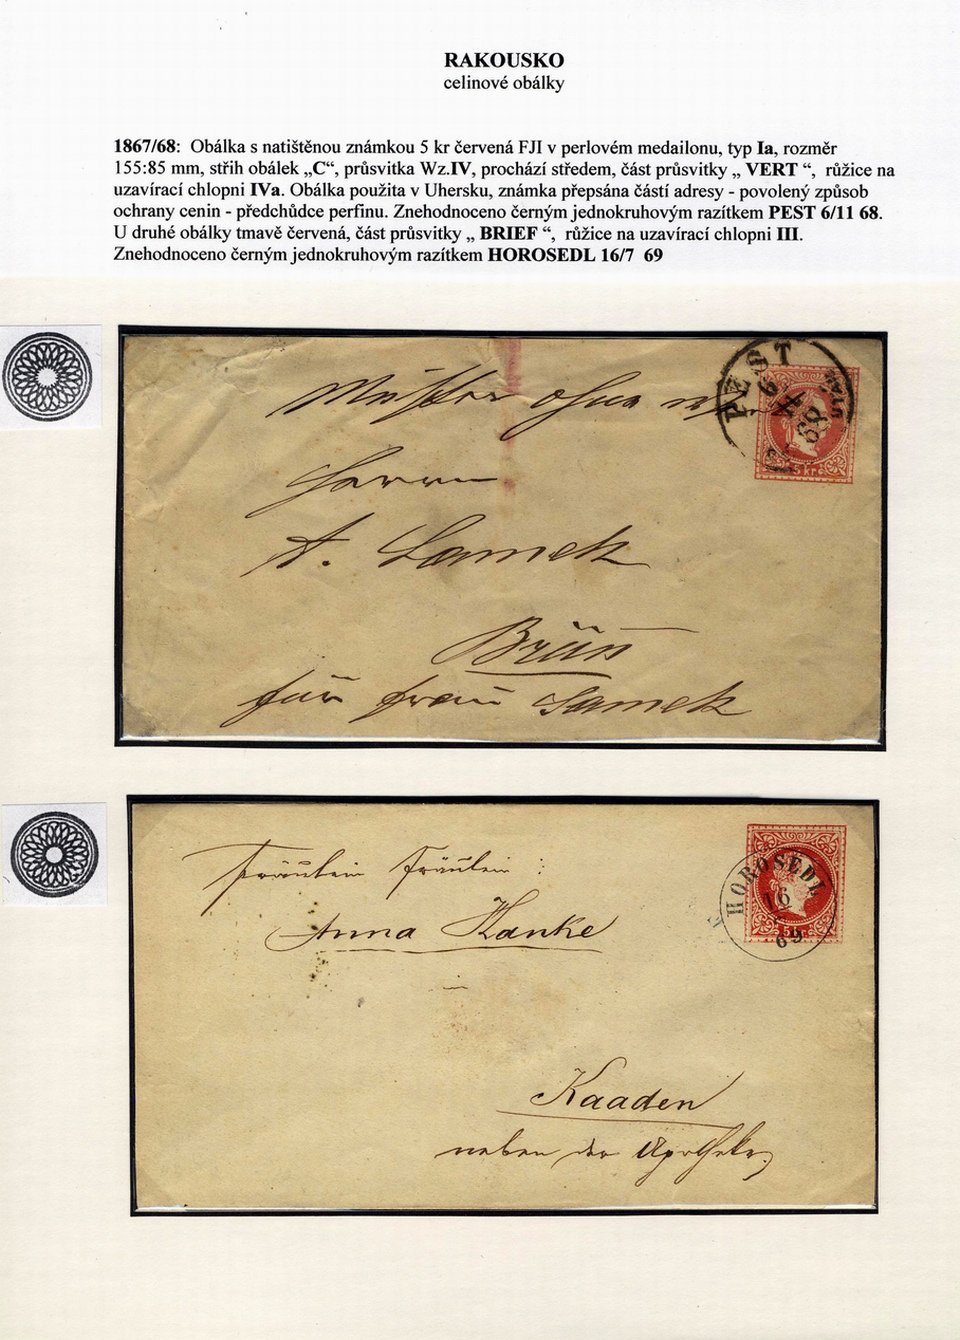 RAKOUSKO
celinové obálky
1867/68: Obálka s natištěnou známkou 5 kr červená FJI v perlovém medailonu, typ Ia, rozměr
155:85 mm, střih obálek „C“, průsvitka Wz.IV, prochází středem, část průsvitky „ VERT “, růžice na
uzavírací chlopni IVa. Obálka použita v Uhersku, známka přepsána částí adresy - povolený způsob
ochrany cenin - předchůdce perfinu. Znehodnoceno černým jednokruhovým razítkem PEST 6/11 68.
U druhé obálky tmavě červená, část průsvitky „ BRIEF “, růžice na uzavírací chlopni III.
Znehodnoceno černým jednokruhovým razítkem HOROSEDL 16/7 69
PEST
68
5 kr
Muster ohne
Herrn
A. Samek
Brünn
für Frau Samek
HOROSEDL
16
69
Fräulein Fräulein :
Anna Hanke
Kaaden
neben der Apotheke.